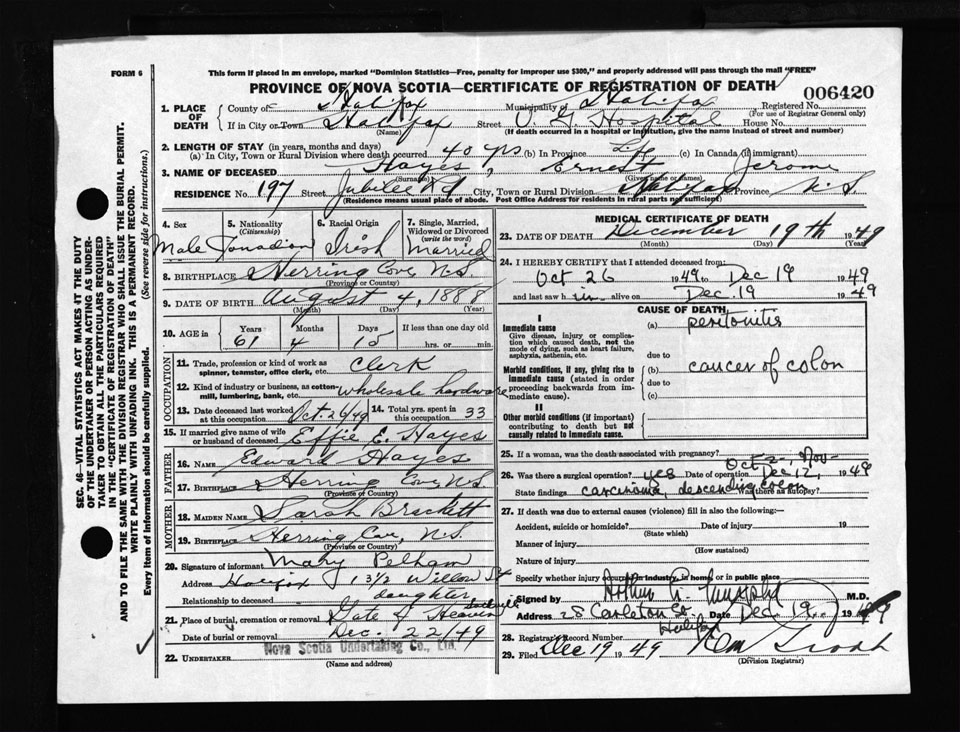 FORM 6
This form if placed in an envelope, marked "Dominion Statistics—Free, penalty for improper use $300," and properly addressed will pass through the mail "FREE"
PROVINCE OF NOVA SCOTIA—CERTIFICATE OF REGISTRATION OF DEATH
006420
1. PLACE OF DEATH County of Halifax Municipality of Halifax Registered No.
(For use of Registrar General only)
If in City or Town Halifax Street V. G. Hospital House No.
(Name) (If death occurred in a hospital or institution, give the name instead of street and number)
2. LENGTH OF STAY (in years, months and days)
(a) In City, Town or Rural Division where death occurred 40 yrs (b) In Province Life (c) In Canada (if immigrant)
3. NAME OF DECEASED Hayes, Ernest Jerome
(Surname) (Given names or names)
RESIDENCE No. 197 Street Jubilee Rd City, Town or Rural Division Halifax Province N.S.
(Residence means usual place of abode. Post Office Address for residents in rural parts not sufficient)
4. Sex Male
5. Nationality (Citizenship) Canadian
6. Racial Origin Irish
7. Single, Married, Widowed or Divorced (write the word) Married
8. BIRTHPLACE Herring Cove N.S.
(Province or Country)
9. DATE OF BIRTH August 4, 1888
(Month) (Day) (Year)
10. AGE in Years Months Days If less than one day old
61 4 15 hrs. or min.
OCCUPATION
11. Trade, profession or kind of work as spinner, teamster, office clerk, etc. Clerk
12. Kind of industry or business, as cotton-mill, lumbering, bank, etc. wholesale hardware
13. Date deceased last worked at this occupation Oct. 26/49 14. Total yrs. spent in this occupation 33
15. If married give name of wife or husband of deceased Effie E. Hayes
FATHER
16. NAME Edward Hayes
17. BIRTHPLACE Herring Cove N.S.
(Province or Country)
MOTHER
18. MAIDEN NAME Sarah Brackett
19. BIRTHPLACE Herring Cove, N.S.
(Province or Country)
20. Signature of informant Mary Pelham
Address Halifax 13½ Willow St
Relationship to deceased daughter
21. Place of burial, cremation or removal Gate of Heaven
Date of burial or removal Dec. 22/49
22. UNDERTAKER Nova Scotia Undertaking Co., Ltd.
(Name and address)
MEDICAL CERTIFICATE OF DEATH
23. DATE OF DEATH December 19th 1949
(Month) (Day) (Year)
24. I HEREBY CERTIFY that I attended deceased from:
Oct 26 1949 to Dec 19 1949
and last saw him alive on Dec. 19 1949
CAUSE OF DEATH
I
Immediate cause (a) peritonitis
Give disease, injury or complication which caused death, not the mode of dying, such as heart failure, asphyxia, asthenia, etc.
due to
Morbid conditions, if any, giving rise to immediate cause (stated in order proceeding backwards from immediate cause).
(b) cancer of colon
due to
(c)
II
Other morbid conditions (if important) contributing to death but not causally related to immediate cause.
25. If a woman, was the death associated with pregnancy?
26. Was there a surgical operation? yes Date of operation Oct Nov Dec 12, 1949
State findings carcinoma, descending colon Was there an autopsy?
27. If death was due to external causes (violence) fill in also the following:—
Accident, suicide or homicide? Date of injury 19
(State which)
Manner of injury
(How sustained)
Nature of injury
Specify whether injury occurred in industry, in home, or in public place
Signed by Arthur Murphy M.D.
Address 28 Carleton St. Halifax Date Dec 19 1949
28. Registrar's Record Number
29. Filed Dec 19 1949
(Division Registrar)
SEC. 46—VITAL STATISTICS ACT MAKES IT THE DUTY
OF THE UNDERTAKER OR PERSON ACTING AS UNDER-
TAKER TO OBTAIN ALL THE PARTICULARS REQUIRED
IN THE "CERTIFICATE OF REGISTRATION OF DEATH"
AND TO FILE THE SAME WITH THE DIVISION REGISTRAR WHO SHALL ISSUE THE BURIAL PERMIT.
WRITE PLAINLY WITH UNFADING INK. THIS IS A PERMANENT RECORD.
Every item of information should be carefully supplied. (See reverse side for instructions.)